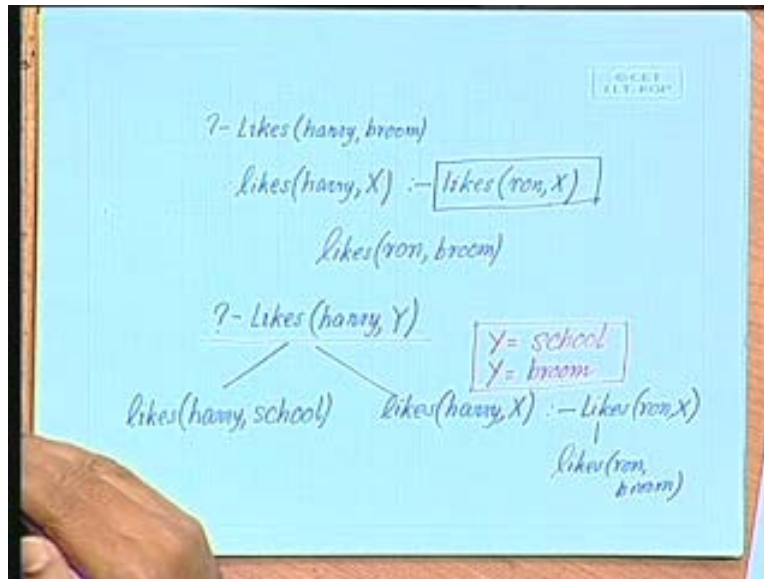 © CET
I.I.T. KGP
?- Likes(harry, broom)
likes(harry, X) :- likes(ron, X)
likes(ron, broom)
?- Likes(harry, Y)
Y = school
Y = broom
likes(harry, school)
likes(harry, X) :- Likes(ron, X)
likes(ron,
broom)